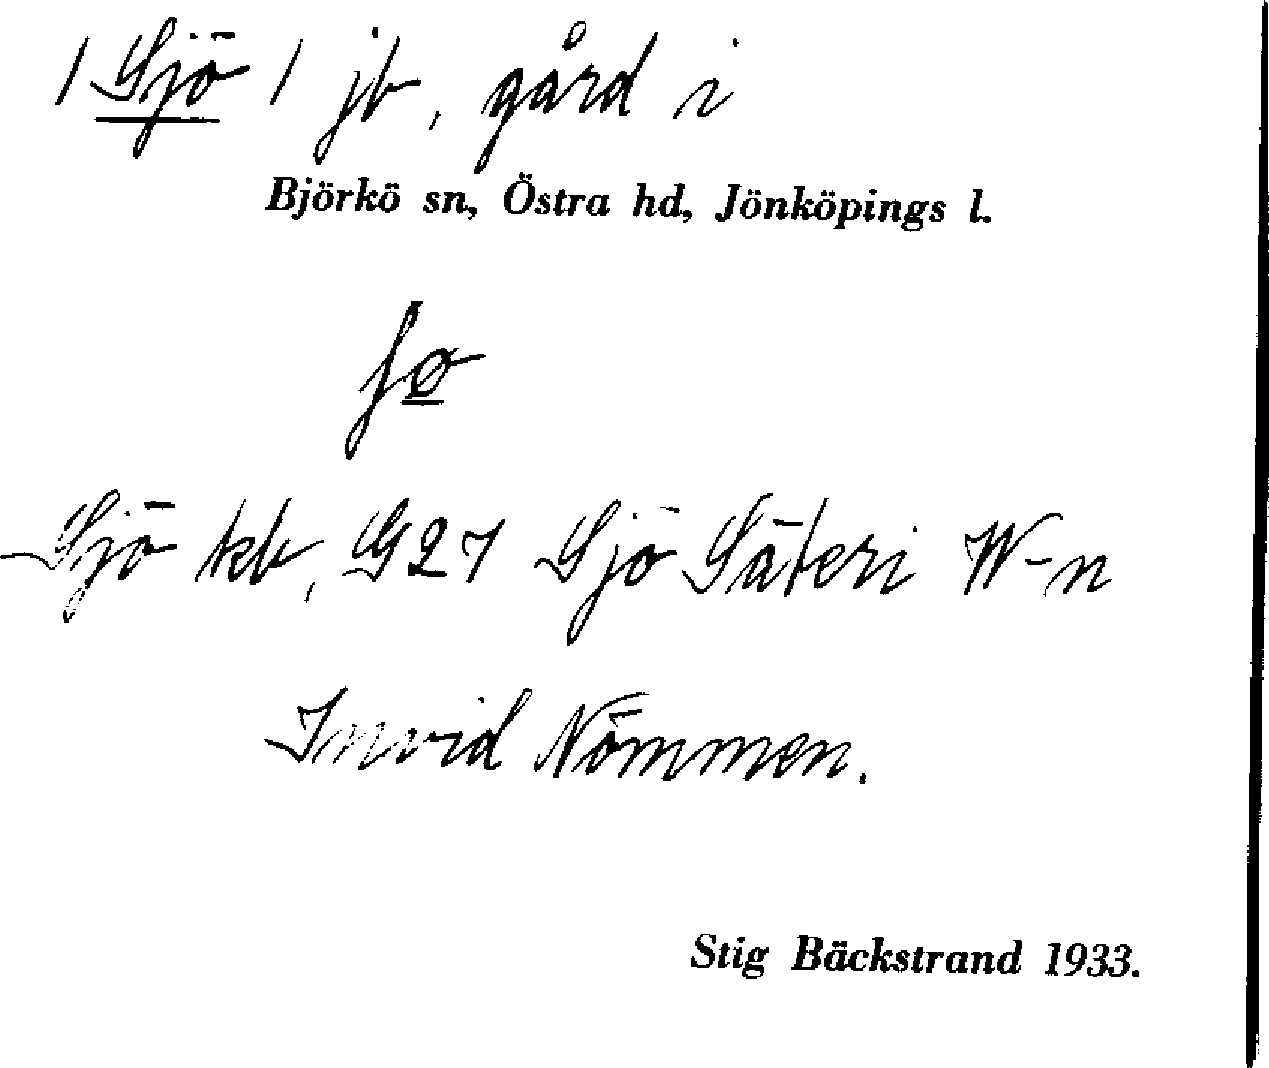 / Sjö / jb, gård i
Björkö sn, Östra hd, Jönköpings l.
fø
Sjö kb, G27 Sjö Säteri W-n
Invid Nömmen.
Stig Bäckstrand 1933.